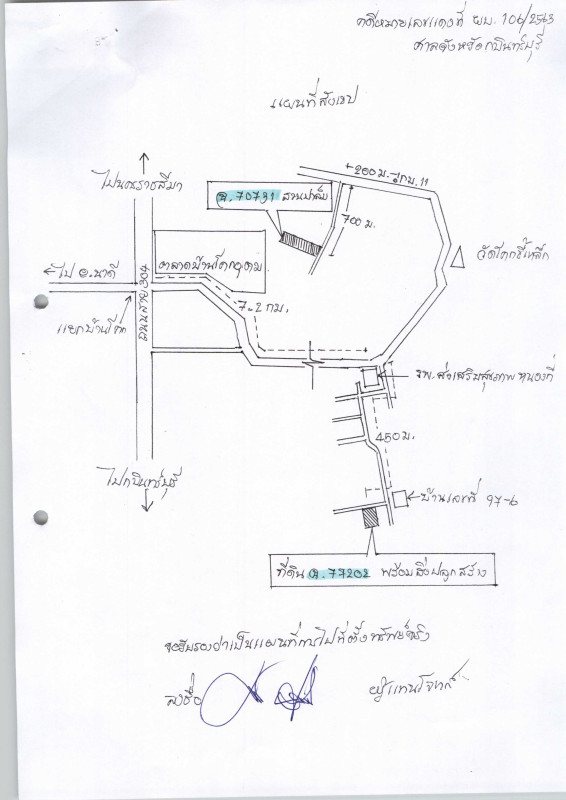 คดีหมายเลขแดงที่ ผบ. 106/2563
ศาลจังหวัดกบินทร์บุรี
แผนที่สังเขป
ไปนครราชสีมา
200 ม. กบ. 11
ฉ. 70731 สวนปาล์ม
700 ม.
วัดโคกขี้เหล็ก
ไป อ.นาดี
ตลาดบ้านโคกอุดม
7.2 กม.
ถนนสาย 304
แยกบ้านโคก
รพ.ส่งเสริมสุขภาพ หนองกี่
450 ม.
ไปกบินทร์บุรี
บ้านเลขที่ 97-6
ที่ดิน ฉ. 77202 พร้อมสิ่งปลูกสร้าง
ขอรับรองว่าเป็นแผนที่การไปที่ตั้งทรัพย์จริง
ลงชื่อ ผู้แทนโจทก์